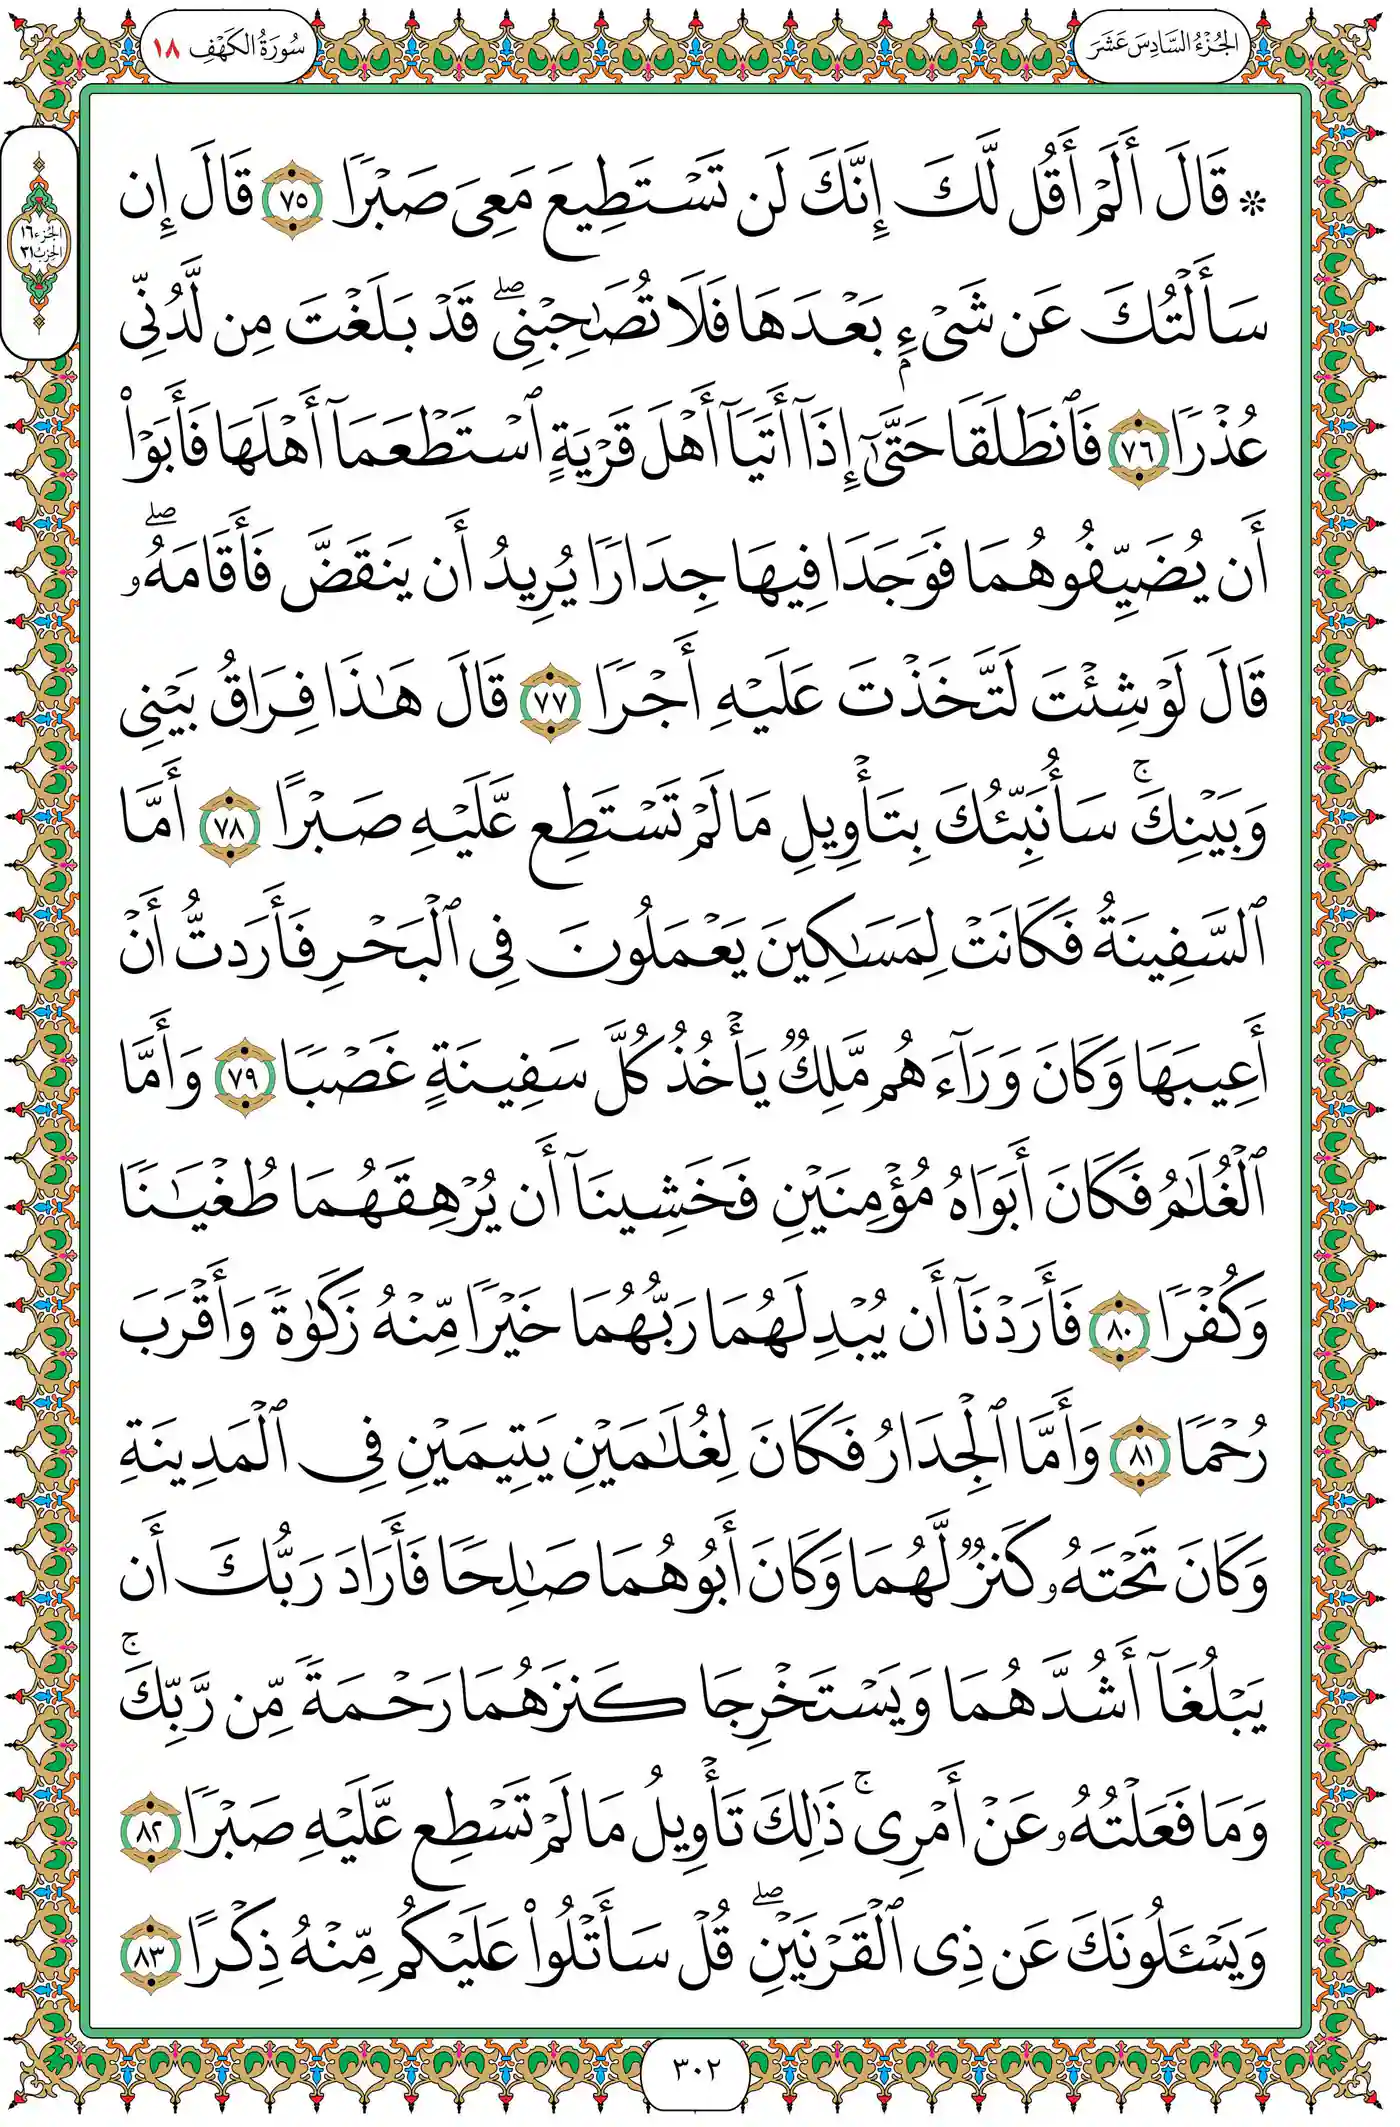 سُورَةُ الكَهْفِ ١٨
الجُزْءُ السَّادِسَ عَشَرَ
الجزء ١٦
الحزب ٣١
۞ قَالَ أَلَمْ أَقُل لَّكَ إِنَّكَ لَن تَسْتَطِيعَ مَعِىَ صَبْرًا ٧٥ قَالَ إِن
سَأَلْتُكَ عَن شَىْءٍۭ بَعْدَهَا فَلَا تُصَٰحِبْنِىۖ قَدْ بَلَغْتَ مِن لَّدُنِّى
عُذْرًا ٧٦ فَٱنطَلَقَا حَتَّىٰٓ إِذَآ أَتَيَآ أَهْلَ قَرْيَةٍ ٱسْتَطْعَمَآ أَهْلَهَا فَأَبَوْا۟
أَن يُضَيِّفُوهُمَا فَوَجَدَا فِيهَا جِدَارًا يُرِيدُ أَن يَنقَضَّ فَأَقَامَهُۥۖ
قَالَ لَوْ شِئْتَ لَتَّخَذْتَ عَلَيْهِ أَجْرًا ٧٧ قَالَ هَٰذَا فِرَاقُ بَيْنِى
وَبَيْنِكَۚ سَأُنَبِّئُكَ بِتَأْوِيلِ مَا لَمْ تَسْتَطِع عَّلَيْهِ صَبْرًا ٧٨ أَمَّا
ٱلسَّفِينَةُ فَكَانَتْ لِمَسَٰكِينَ يَعْمَلُونَ فِى ٱلْبَحْرِ فَأَرَدتُّ أَنْ
أَعِيبَهَا وَكَانَ وَرَآءَهُم مَّلِكٌ يَأْخُذُ كُلَّ سَفِينَةٍ غَصْبًا ٧٩ وَأَمَّا
ٱلْغُلَٰمُ فَكَانَ أَبَوَاهُ مُؤْمِنَيْنِ فَخَشِينَآ أَن يُرْهِقَهُمَا طُغْيَٰنًا
وَكُفْرًا ٨٠ فَأَرَدْنَآ أَن يُبْدِلَهُمَا رَبُّهُمَا خَيْرًا مِّنْهُ زَكَوٰةً وَأَقْرَبَ
رُحْمًا ٨١ وَأَمَّا ٱلْجِدَارُ فَكَانَ لِغُلَٰمَيْنِ يَتِيمَيْنِ فِى ٱلْمَدِينَةِ
وَكَانَ تَحْتَهُۥ كَنزٌ لَّهُمَا وَكَانَ أَبُوهُمَا صَٰلِحًا فَأَرَادَ رَبُّكَ أَن
يَبْلُغَآ أَشُدَّهُمَا وَيَسْتَخْرِجَا كَنزَهُمَا رَحْمَةً مِّن رَّبِّكَۚ
وَمَا فَعَلْتُهُۥ عَنْ أَمْرِىۚ ذَٰلِكَ تَأْوِيلُ مَا لَمْ تَسْطِع عَّلَيْهِ صَبْرًا ٨٢
وَيَسْـَٔلُونَكَ عَن ذِى ٱلْقَرْنَيْنِۖ قُلْ سَأَتْلُوا۟ عَلَيْكُم مِّنْهُ ذِكْرًا ٨٣
٣٠٢